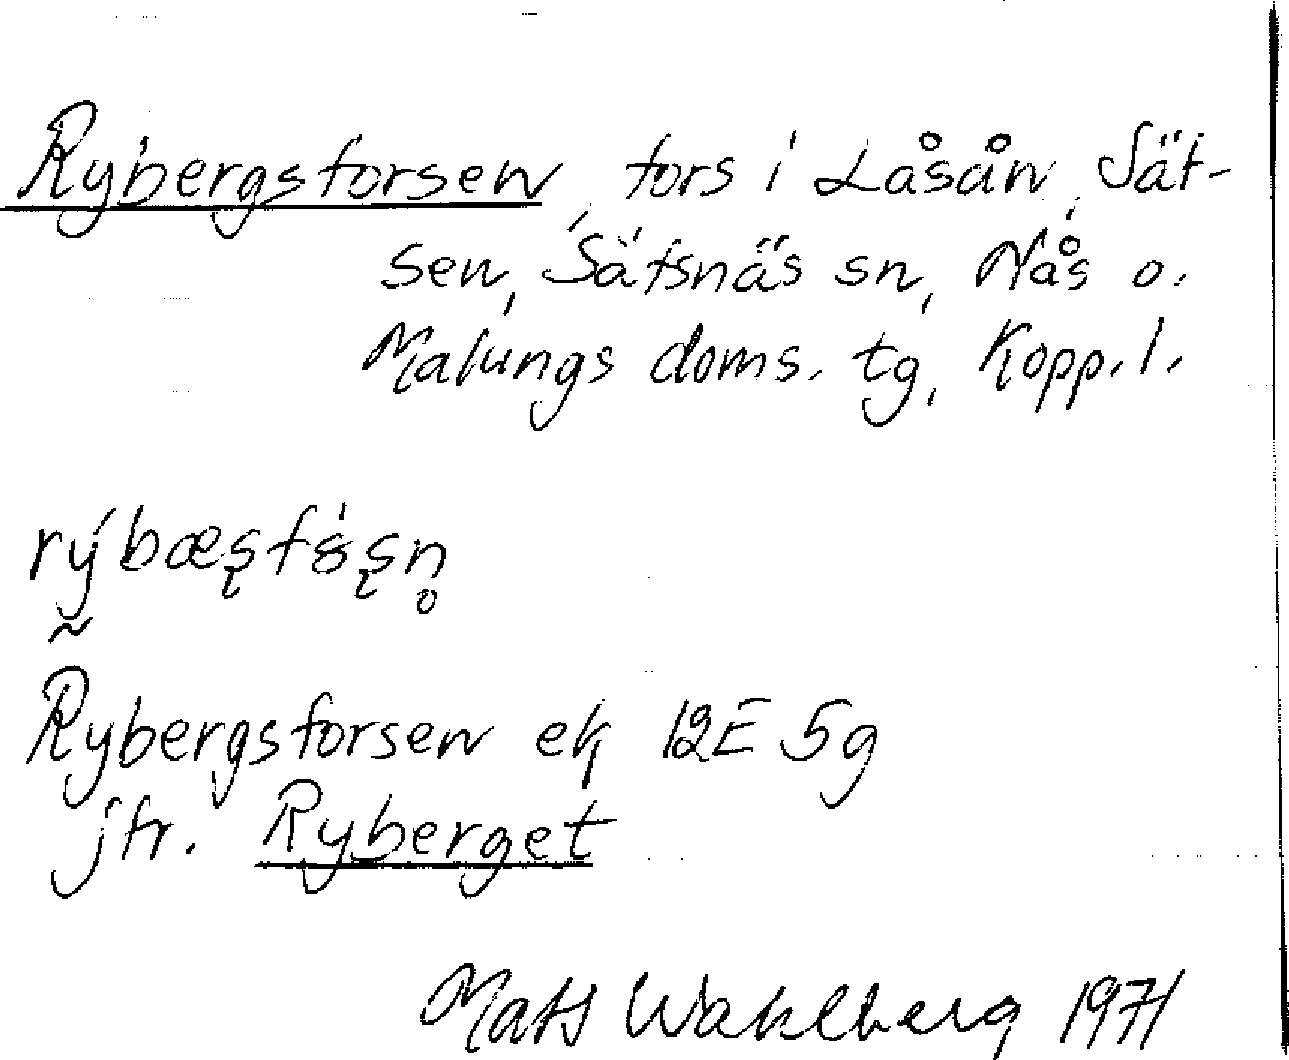 Rybergsforsen, fors i Låsån, Sät-
sen, Sätsnäs sn, Nås o.
Malungs doms. tg, Kopp. l.
rýbæșfɵ́șn̥
Rybergsforsen ek 12E 5g
jfr. Ryberget
Mats Wahlberg 1971